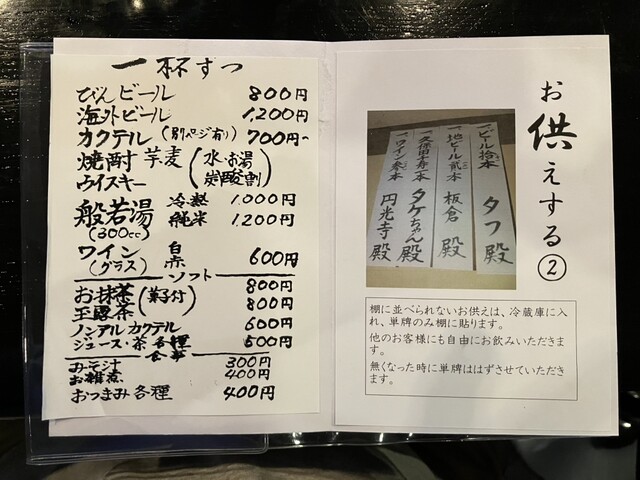 一杯ずつ
びんビール 800円
海外ビール 1,200円
カクテル(別ページ有り) 700円~
焼酎 芋麦(水・お湯
ウイスキー 炭酸割)
般若湯 冷製 1,000円
(300cc) 純米 1,200円
ワイン 白
(グラス) 赤 600円
ソフト
お抹茶(菓子付) 800円
玉露茶 800円
ノンアルカクテル 600円
ジュース・茶各種 500円
食事
みそ汁 300円
お雑煮 400円
おつまみ各種 400円
お供えする②
一ビール拾本 タフ殿
一地ビール弐本 板倉殿
一久保田千寿一本 タケちゃん殿
一ワイン参本 円光寺殿
棚に並べられないお供えは、冷蔵庫に入
れ、単牌のみ棚に貼ります。
他のお客様にも自由にお飲みいただきま
す。
無くなった時に単牌ははずさせていただき
ます。